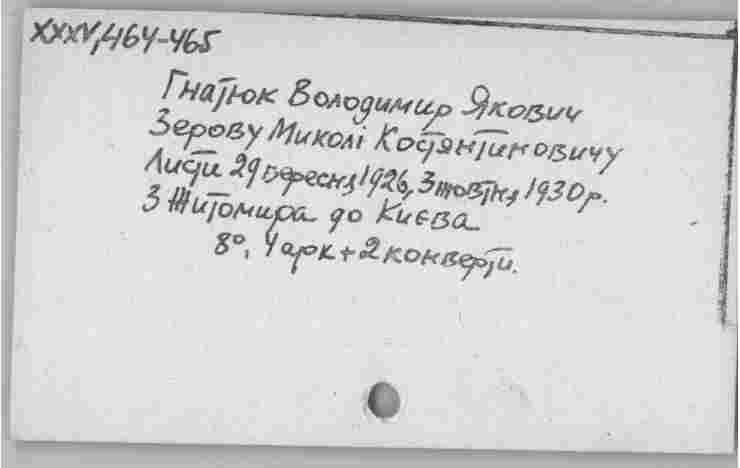 XXXV, 464-465
Гнатюк Володимир Якович
Зерову Миколі Костянтиновичу
Листи 29 вересня 1926, 3 жовтня 1930 р.
З Житомира до Києва
8°, 4 арк + 2 конверти.